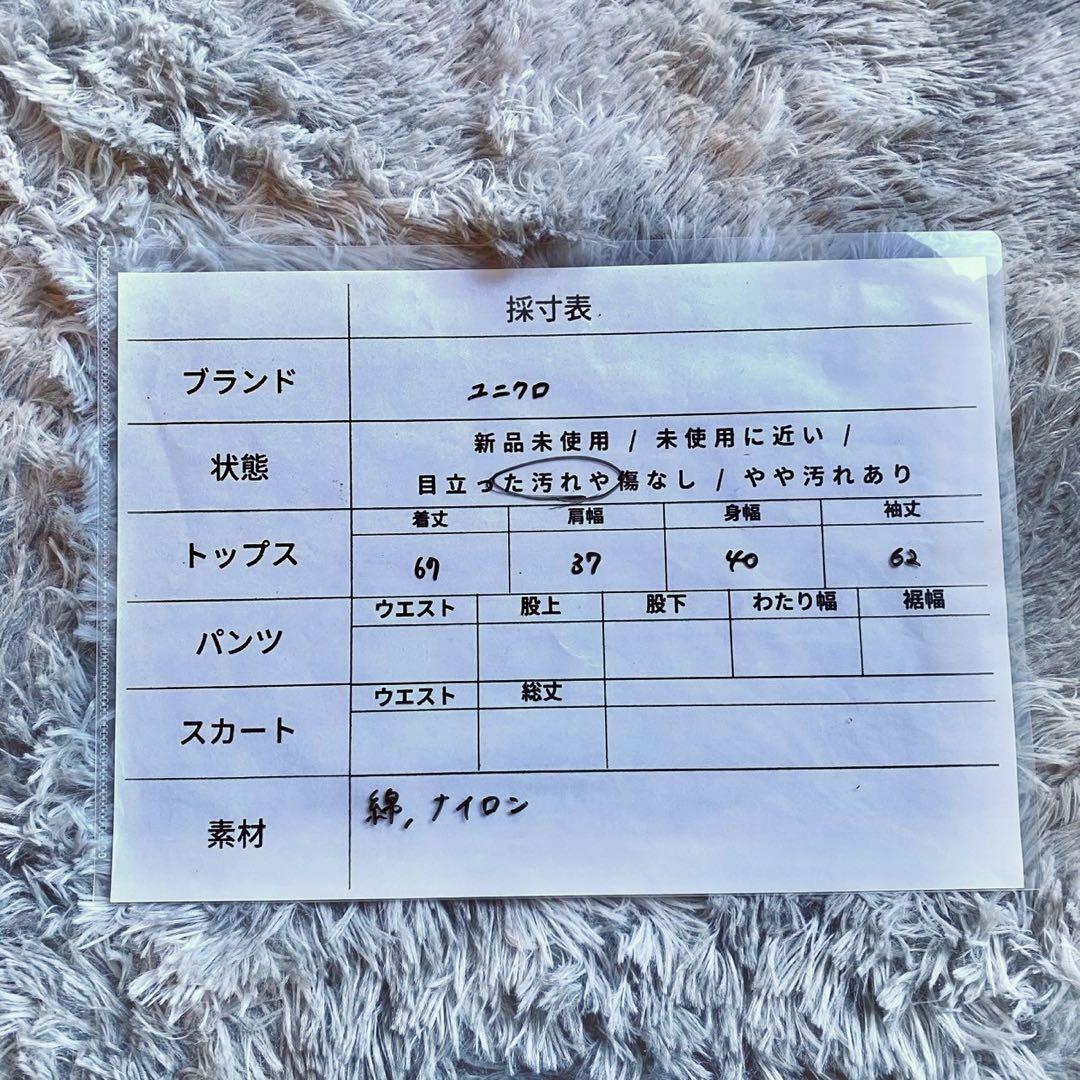 採寸表
ブランド
ユニクロ
状態
新品未使用 / 未使用に近い /
目立った汚れや傷なし / やや汚れあり
トップス
着丈 肩幅 身幅 袖丈
67 37 40 62
パンツ
ウエスト 股上 股下 わたり幅 裾幅
スカート
ウエスト 総丈
素材
綿, ナイロン